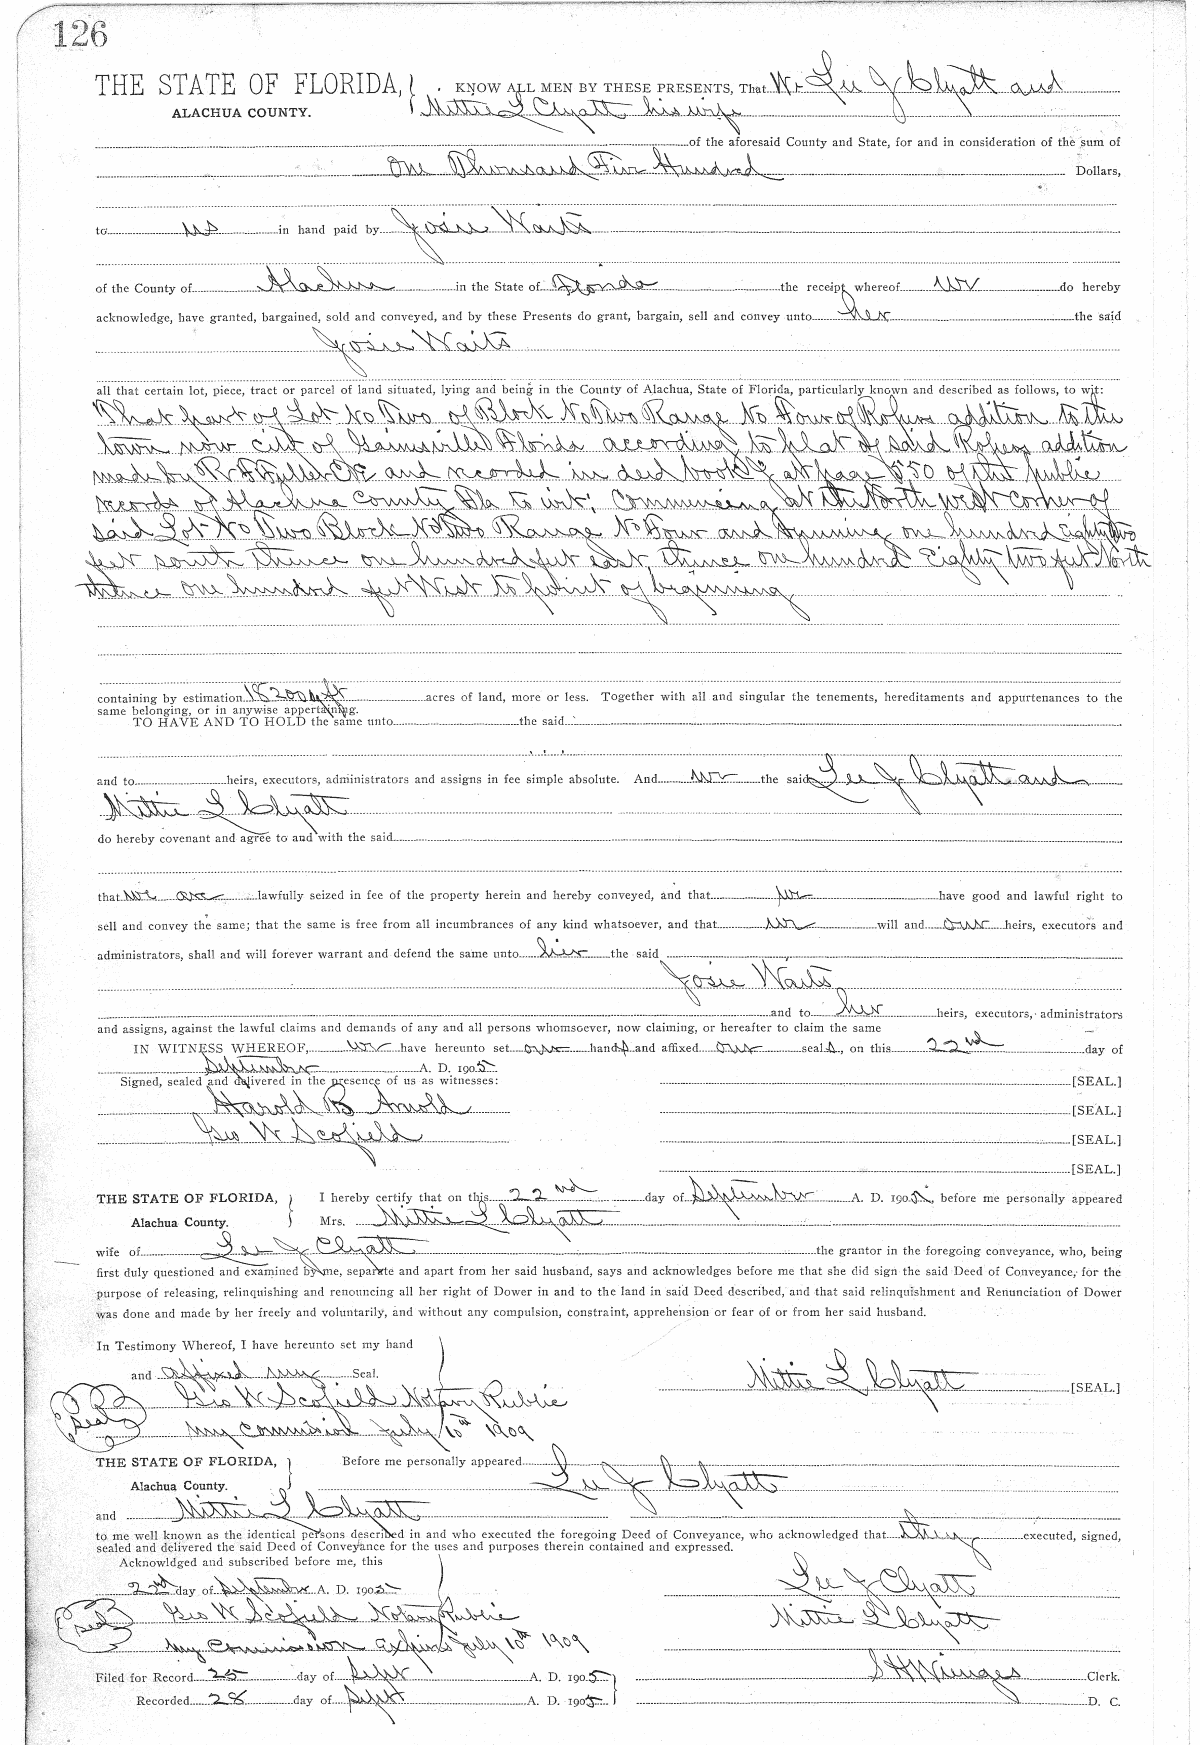 126
THE STATE OF FLORIDA, KNOW ALL MEN BY THESE PRESENTS, That We Lee J Clyatt and
ALACHUA COUNTY. Mittie L Clyatt his wife
of the aforesaid County and State, for and in consideration of the sum of
One Thousand Five Hundred Dollars,
to us in hand paid by Josie Waits
of the County of Alachua in the State of Florida the receipt whereof we do hereby
acknowledge, have granted, bargained, sold and conveyed, and by these Presents do grant, bargain, sell and convey unto her the said
Josie Waits
all that certain lot, piece, tract or parcel of land situated, lying and being in the County of Alachua, State of Florida, particularly known and described as follows, to wit:
That part of Lot No Two of Block No Two Range No Four of Ropers addition to the
town now city of Gainsville Florida according to plat of said Ropers addition
made by R F Fuller C E and recorded in deed book at page 550 of the public
records of Alachua County Fla to wit; Commencing at the North west corner of
said Lot No Two Block No Two Range No Four and running one hundred Eighty two
feet south thence one hundred feet east, thence one hundred Eighty two feet North
thence one hundred feet West to point of beginning
containing by estimation 18200 sq ft acres of land, more or less. Together with all and singular the tenements, hereditaments and appurtenances to the
same belonging, or in anywise appertaining.
TO HAVE AND TO HOLD the same unto the said
and to heirs, executors, administrators and assigns in fee simple absolute. And we the said Lee J Clyatt and
Mittie L Clyatt
do hereby covenant and agree to and with the said
that we are lawfully seized in fee of the property herein and hereby conveyed, and that we have good and lawful right to
sell and convey the same; that the same is free from all incumbrances of any kind whatsoever, and that we will and our heirs, executors and
administrators, shall and will forever warrant and defend the same unto her the said
Josie Waits
and to her heirs, executors, administrators
and assigns, against the lawful claims and demands of any and all persons whomsoever, now claiming, or hereafter to claim the same
IN WITNESS WHEREOF, we have hereunto set our hands and affixed our seals, on this 22nd day of
September A. D. 1905
Signed, sealed and delivered in the presence of us as witnesses: [SEAL.]
Harold B Arnold [SEAL.]
Geo W Scofield [SEAL.]
[SEAL.]
THE STATE OF FLORIDA, I hereby certify that on this 22nd day of September A. D. 1905, before me personally appeared
Alachua County. Mrs. Mittie L Clyatt
wife of Lee J Clyatt the grantor in the foregoing conveyance, who, being
first duly questioned and examined by me, separate and apart from her said husband, says and acknowledges before me that she did sign the said Deed of Conveyance, for the
purpose of releasing, relinquishing and renouncing all her right of Dower in and to the land in said Deed described, and that said relinquishment and Renunciation of Dower
was done and made by her freely and voluntarily, and without any compulsion, constraint, apprehension or fear of or from her said husband.
In Testimony Whereof, I have hereunto set my hand
and affixed my Seal. Mittie L Clyatt [SEAL.]
Seal Geo W Scofield Notary Public
my commision July 10th 1909
THE STATE OF FLORIDA, Before me personally appeared Lee J Clyatt
Alachua County.
and Mittie L Clyatt
to me well known as the identical persons described in and who executed the foregoing Deed of Conveyance, who acknowledged that they executed, signed,
sealed and delivered the said Deed of Conveyance for the uses and purposes therein contained and expressed.
Acknowldged and subscribed before me, this
22nd day of September A. D. 1905 Lee J Clyatt
Seal Geo W Scofield Notary Public Mittie L Clyatt
my Commission Expires July 10th 1909
Filed for Record 25 day of Sept A. D. 1905 S H Wienges Clerk.
Recorded 28 day of Sept A. D. 1905 D. C.